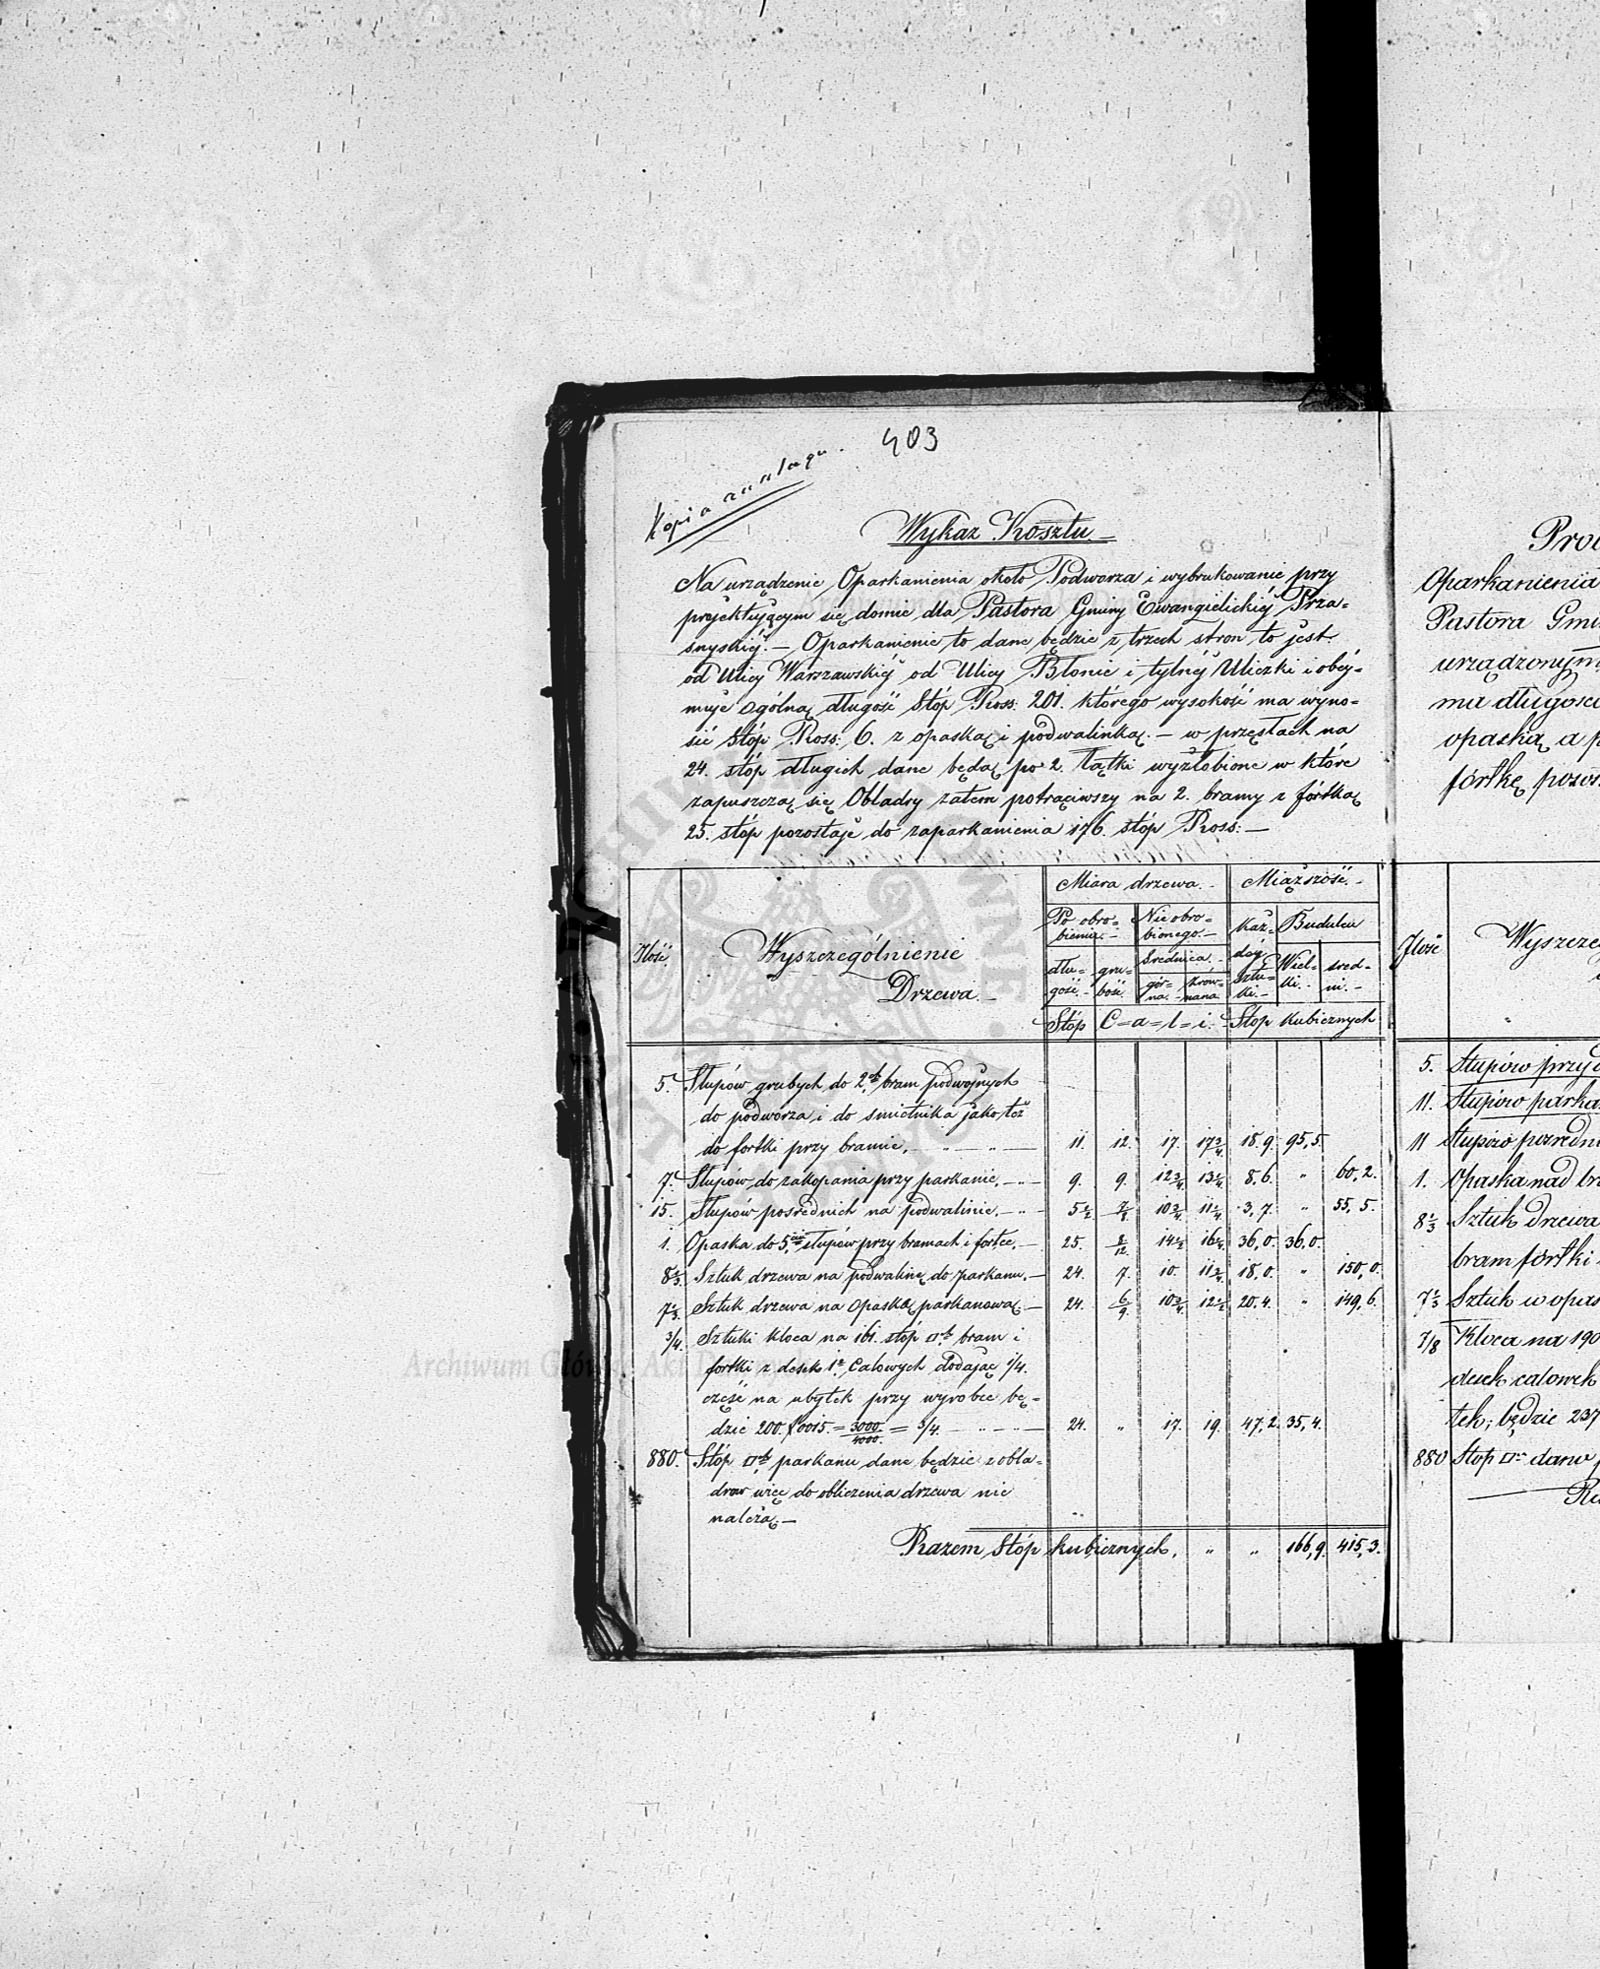 403
Kopia
Wykaz Kosztu.
Na urządzenie Oparkanienia około Podworza i wybrukowanie przy
projektującym się domie dla Pastora Gminy Ewangielickiéj Prza=
snyskiéj. — Oparkanienie to dane będzie z trzech stron to jest
od Ulicy Warszawskiéj od Ulicy Błonie i tylnéj Uliczki i obéj=
muje ogólną długość Stóp Ross: 201. którego wysokość ma wyno=
sić Stóp Ross: 6. z opaską i podwalinką. — w przęsłach na
24. stóp długich dane będą po 2. łątki wyżłobione w które
zapuszczą się Obladry zatem potrąciwszy na 2. bramy z fórtką
25. stóp pozostaje do zaparkanienia 176. stóp Ross: —
Ilość. Wyszczególnienie Drzewa. Miara drzewa. Miąższość.
Po obro= bienia. Nieobro= bionego. Każ= déj sztu= ki. Budulcu
dłu= gość. gru= bość. Srednica. gór= na. zrów= nana Wiel= ki. sred= ni.
Stóp C=a=l=i. Stóp Kubicznych
5. Słupów grubych do 2ch bram podwojnych
do podworza i do smietnika jako téż
do fortki przy bramie. 11. 12. 17. 17 3/4. 18.9. 95,5.
7. Słupów do zakopania przy parkanie. 9. 9. 12 3/4. 13 1/4. 8,6. " 60,2.
15. Słupów posrednich na podwalinie. 5 1/2 7/8 10 3/4 11 1/4 3,7. " 55,5.
1. Opaska do 5ciu słupów przy bramach i fortce. 25. 8/12 14 1/2 16 1/4. 36,0. 36,0.
8 1/3. Sztuk drzewa na podwalinę do parkanu. 24. 7. 10. 11 3/4. 18,0. " 150,0.
7 1/3. Sztuk drzewa na opaskę parkanową. 24. 6/9. 10 3/4. 12 1/2 20,4. " 149,6.
3/4. Sztuki kloca na 161. stóp □ch bram i
fortki z desek 1o Calowych dodając 1/4.
część na ubytek przy wyrobce bę=
dzie 200. 0015. = 3000/4000. = 3/4. 24. " 17. 19. 47,2. 35,4.
880. Stóp □ch parkanu dane będzie z obla=
drow więc do obliczenia drzewa nie
należą. —
Razem Stóp kubicznych. " " 166,9. 415,3.
Oparkanienia
Pastora
urządzonym
opaską a
fórtkę
Ilość
5. Słupów przy
11. Słupów
11 Słupów
1. Opaska nad
8 1/3 Sztuk drzewa
bram fórtki
7 1/3 Sztuk w
7/8 Kloca na 190
desek calowek
tek, będzie 237
880 Stóp □ch dane
Archiwum Główne Akt